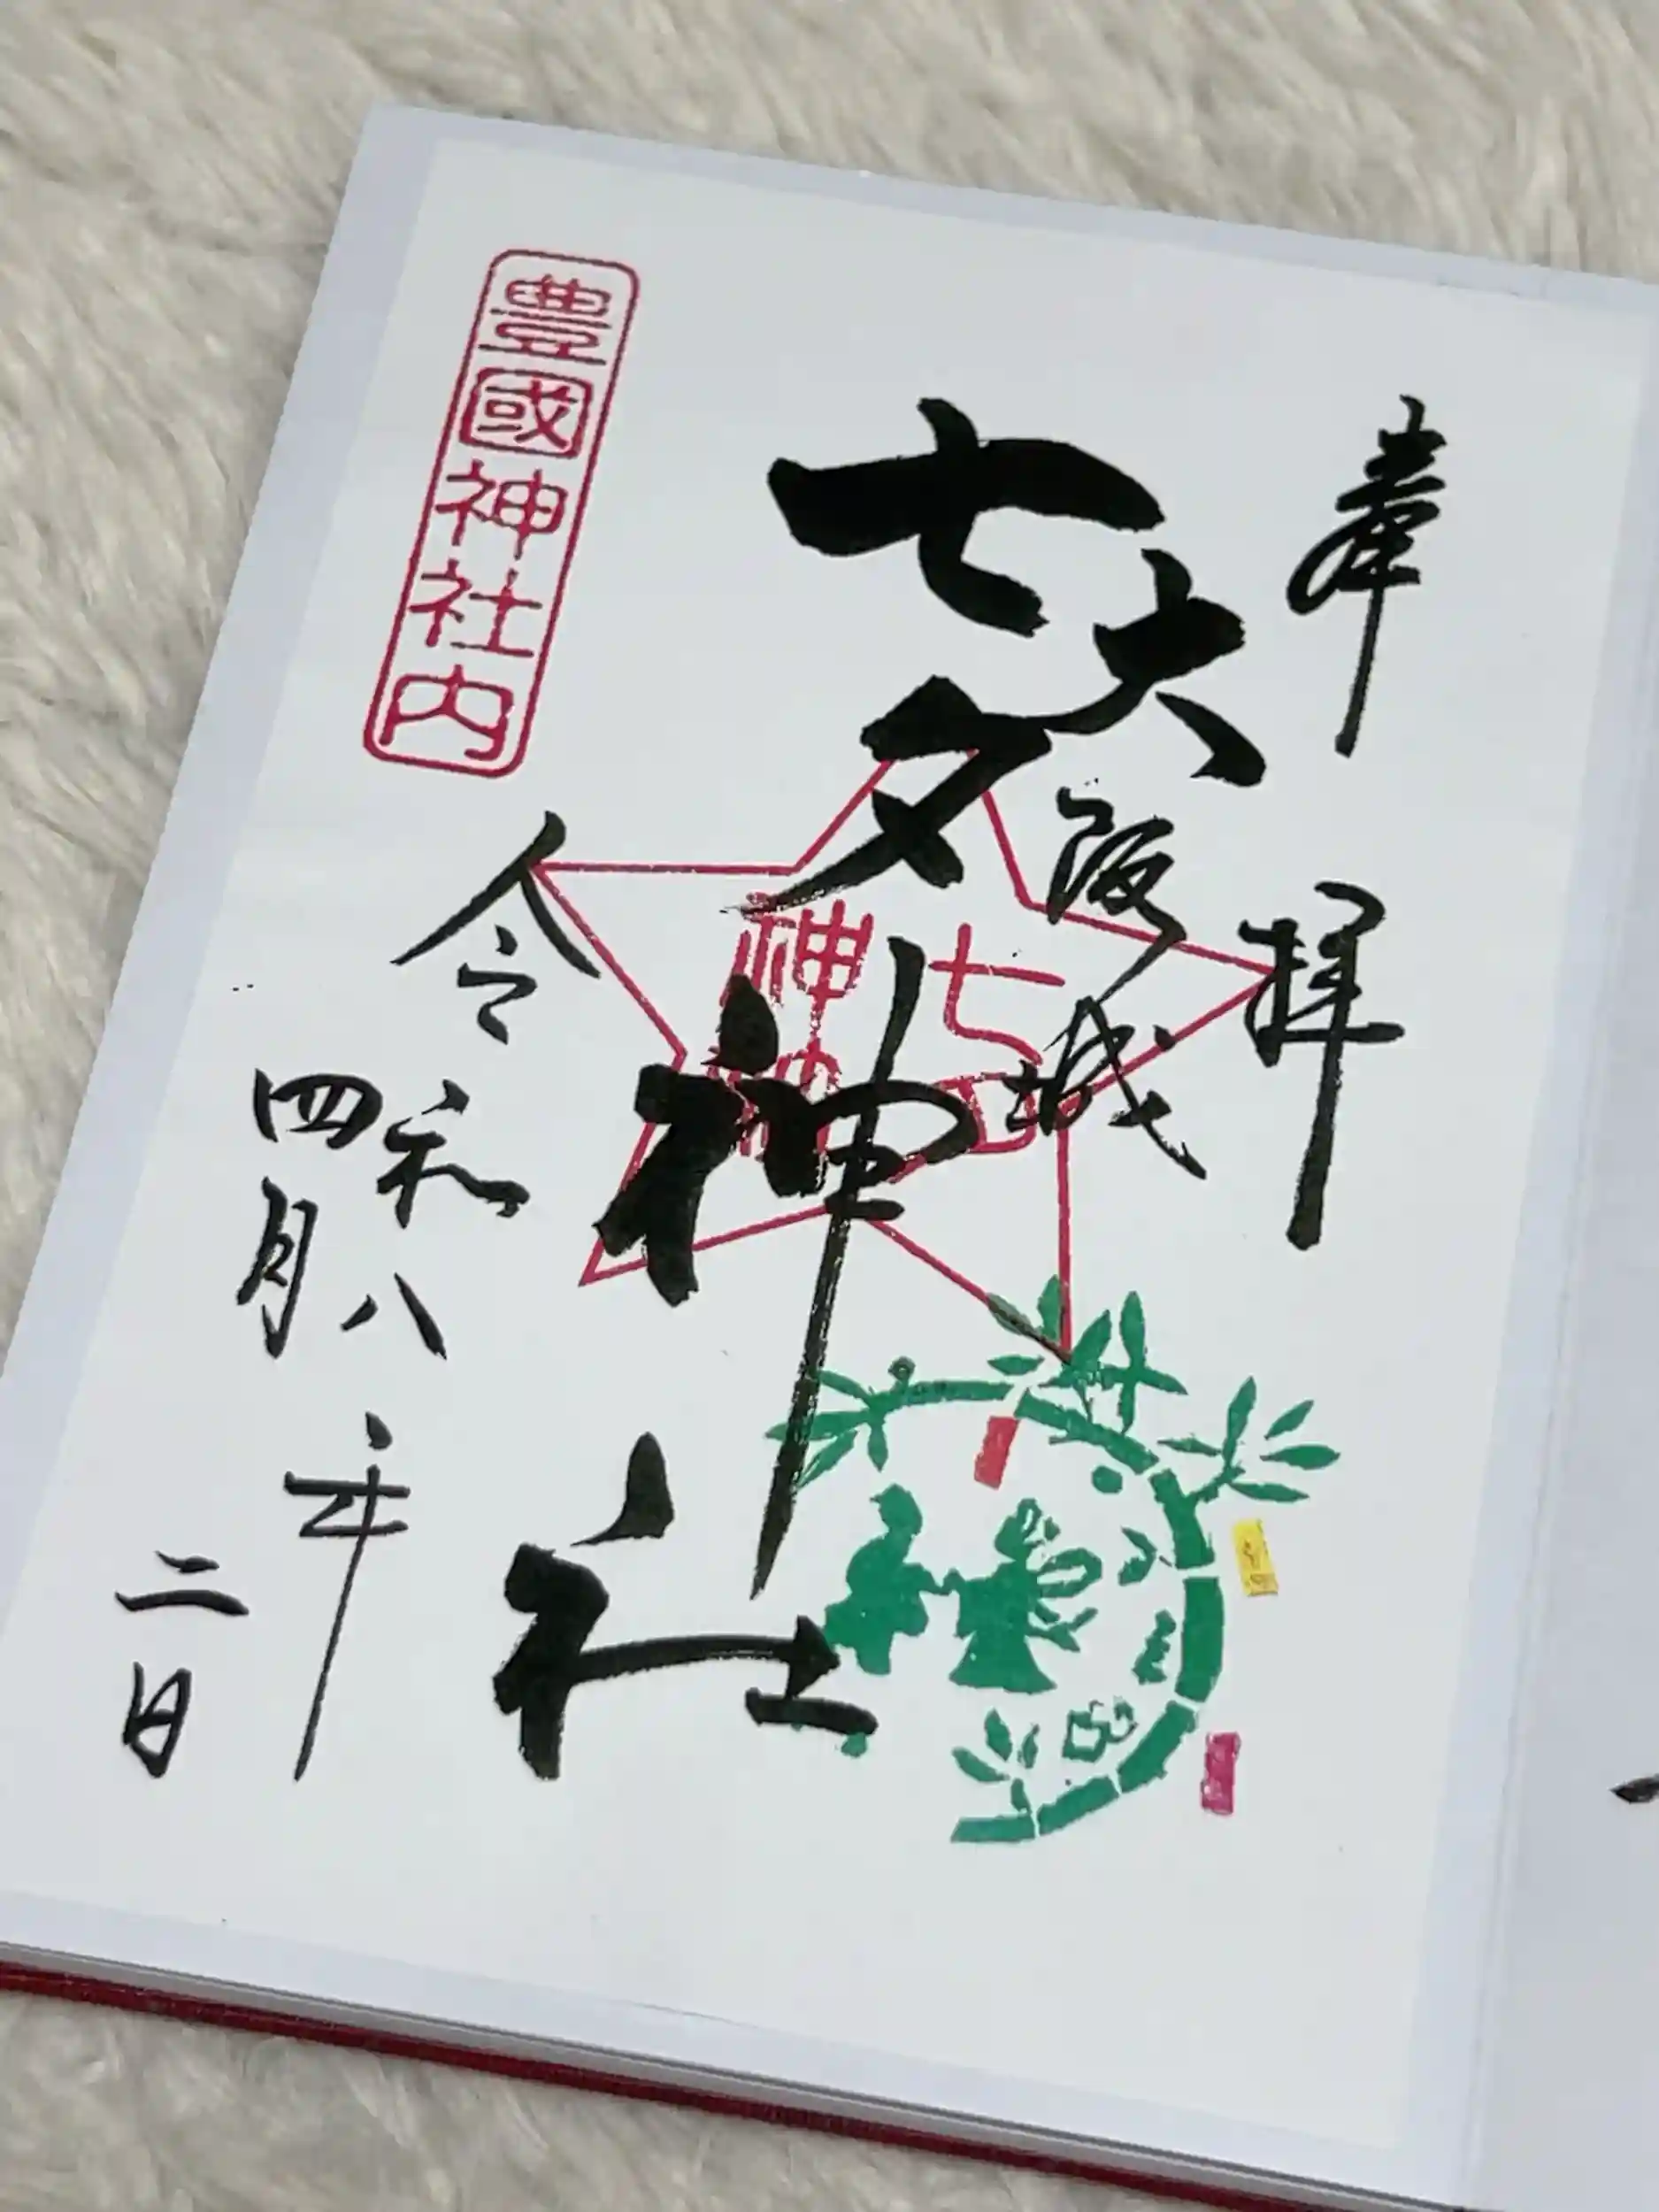 奉拝
大阪城
七夕神社
七夕
神社
豊國神社内
令和八年
四月二日